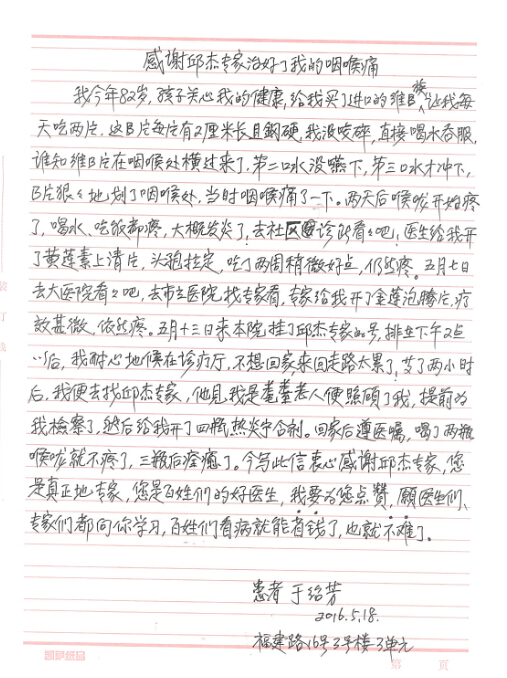 感谢邱杰专家治好了我的咽喉痛
我今年82岁,孩子关心我的健康,给我买了进口的维B族让我每
天吃两片,这B片每片有2厘米长且钢硬,我没咬碎,直接喝水吞服,
谁知维B片在咽喉处横过来了,第二口水没嚥下,第三口水才冲下,
B片狠々地划了咽喉处,当时咽喉痛了一下。两天后喉咙开始疼
了,喝水、吃饭都疼,大概发炎了,去社区诊所看々吧!医生给我开
了黄莲素上清片,头孢拉定,吃了两周稍微好点,仍然疼。五月七日
去大医院看々吧,去市立医院,找专家看,专家给我开了金莲泡腾片,疗
效甚微,依然疼。五月十三日来本院,挂了邱杰专家的号,排至下午2点
以后,我耐心地候在诊疗厅,不想回家,来回走路太累了,等了两小时
后,我便去找邱杰专家,他见我是耄耋老人便照顾了我,提前为
我检察了,然后给我开了四瓶热炎宁合剂。回家后遵医嘱,喝了两瓶
喉咙就不疼了,三瓶后痊癒了。今写此信衷心感谢邱杰专家,您
是真正地专家,您是百姓们的好医生,我要为您点赞,愿医生们、
专家们都向你学习,百姓们看病就能省钱了,也就不难了。
患者 于绍芳
2016.5.18.
福建路16号3号楼3单元
第 页